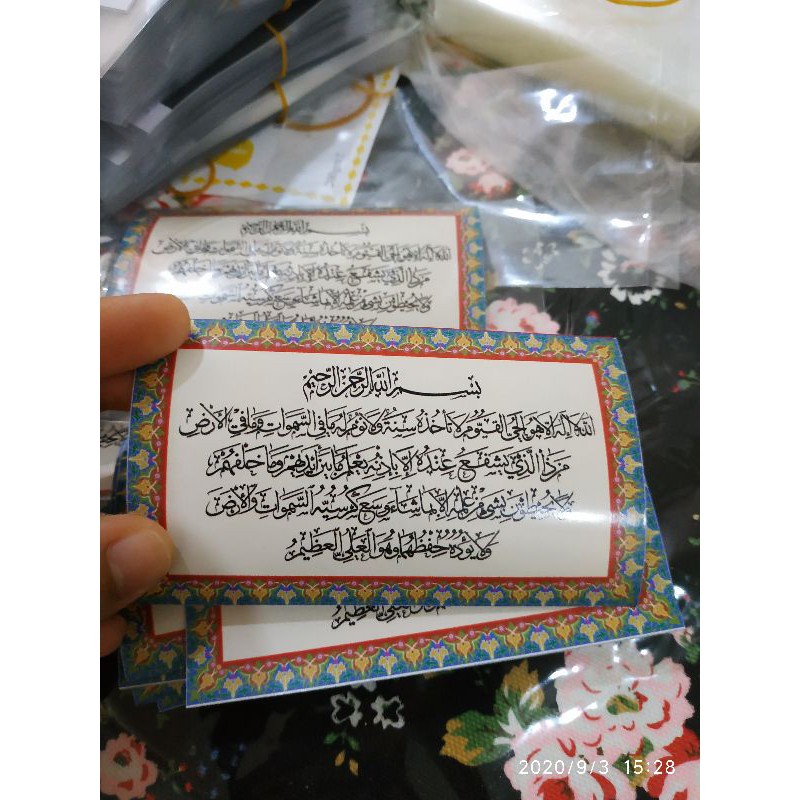 بسم الله الرحمن الرحيم
الله لا إله إلا هو الحي القيوم لا تأخذه سنة ولا نوم له ما في السموات وما في الأرض
من ذا الذي يشفع عنده إلا بإذنه يعلم ما بين أيديهم وما خلفهم
ولا يحيطون بشيء من علمه إلا بما شاء وسع كرسيه السموات والأرض
ولا يؤده حفظهما وهو العلي العظيم
2020/9/3 15:28